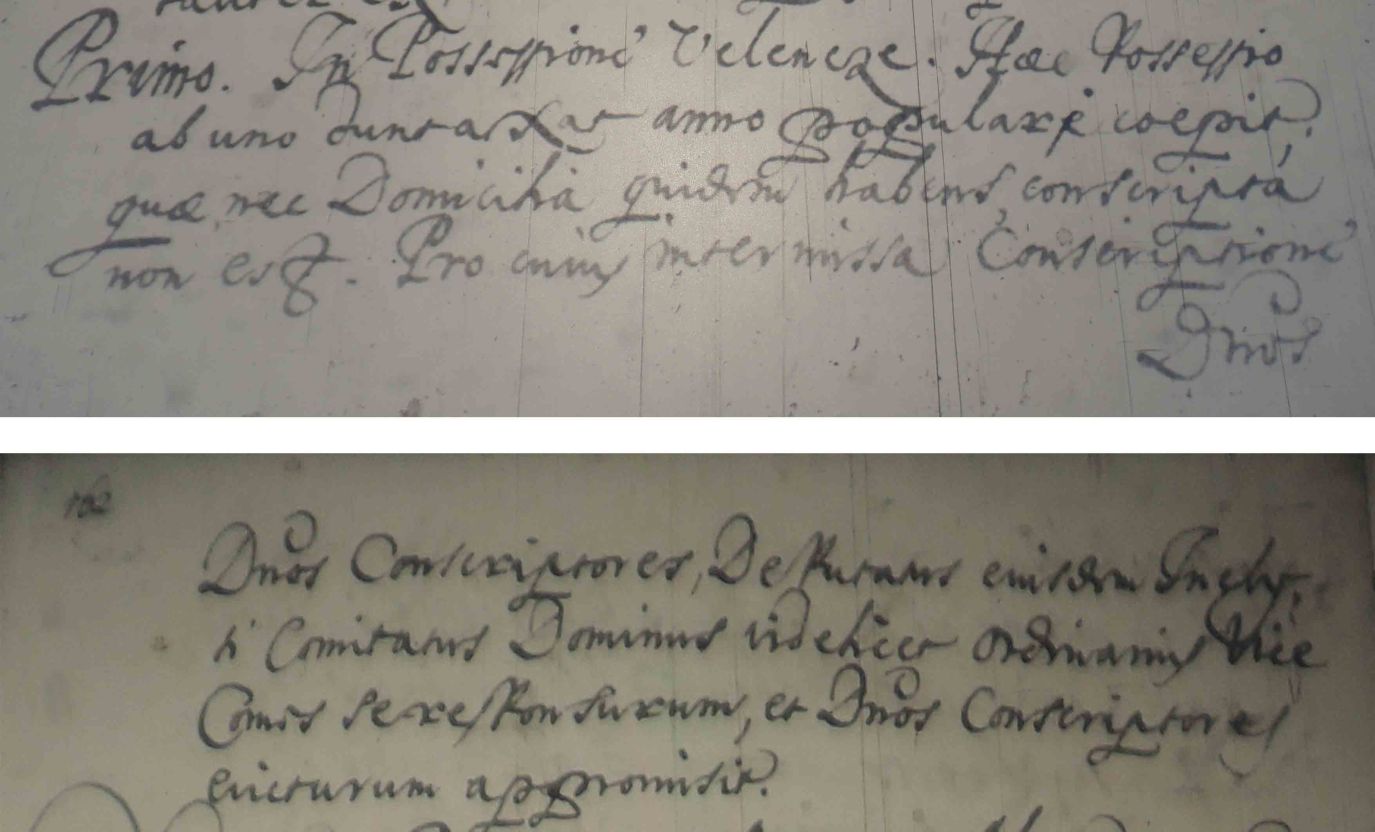 Primo. In Possessione Velencze. Hæc Possessio
ab uno duntaxat anno populari coepit,
quæ nec Domicilia quidem habens, conscripta
non est. Pro cuius intermissa Conscriptione
Dnos
102
Dnos Conscriptores, Deputatus eiusdem Incly,
ti Comitatus Dominus videlicet Ordinarius Vice
Comes se responsurum, et Dnos Conscriptores
evicturum appromisit.